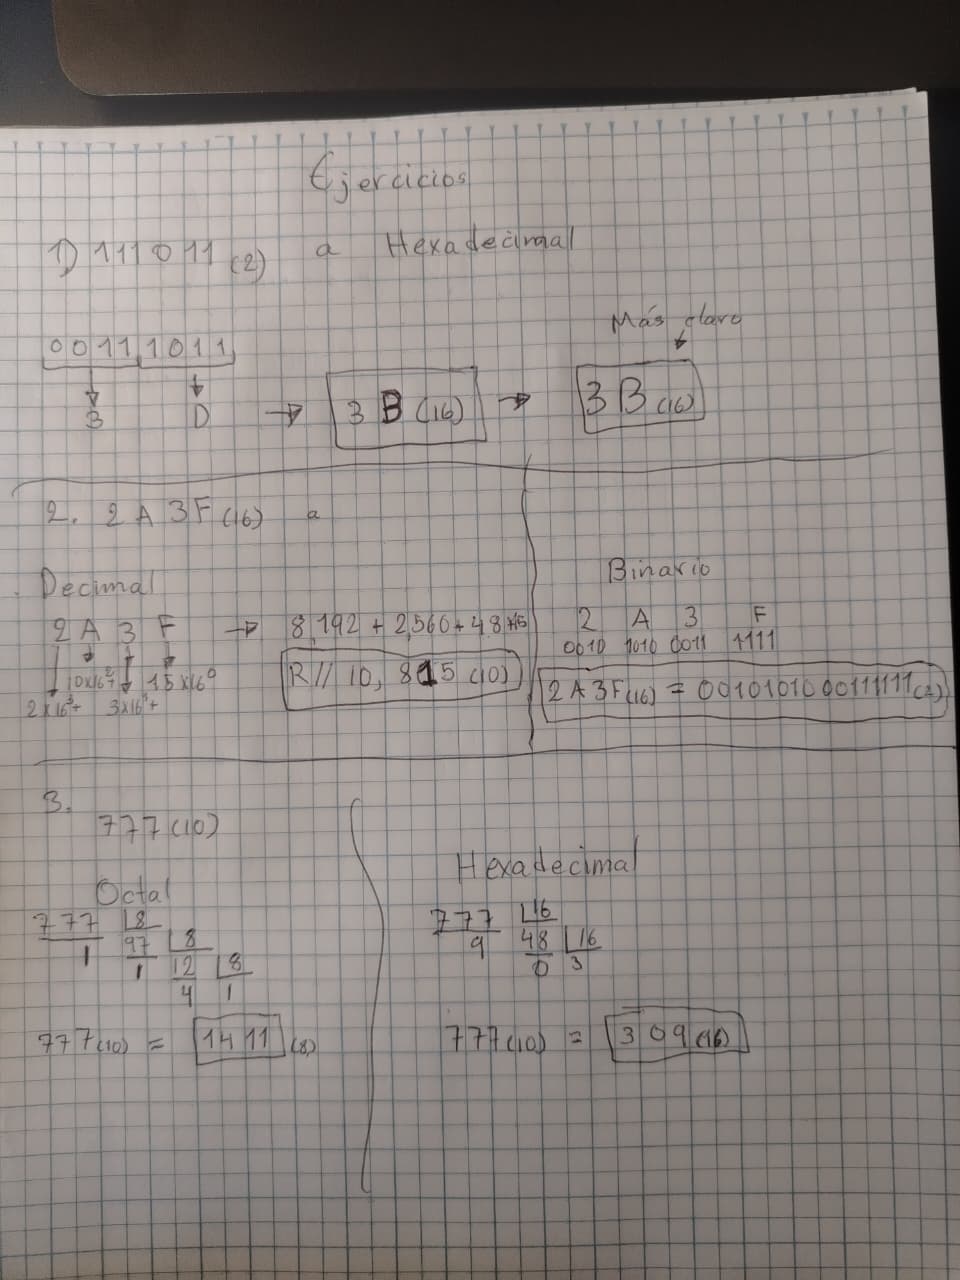 Ejercicios
1) 111011 (2) a Hexadecimal
Más claro
0011 1011
3 D → 3 B (16) → 3 B (16)
2. 2 A 3 F (16) a
Decimal
2 A 3 F → 8,192 + 2,560 + 48 +15
10x16²+ 15x16⁰
2x16³+ 3x16¹+
R// 10, 815 (10)
Binario
2 A 3 F
0010 1010 0011 1111
2 A 3 F (16) = 0010101000111111 (2)
3.
777 (10)
Octal
777 8
1 97 8
1 12 8
4 1
777 (10) = 1411 (8)
Hexadecimal
777 16
9 48 16
0 3
777 (10) = 309 (16)